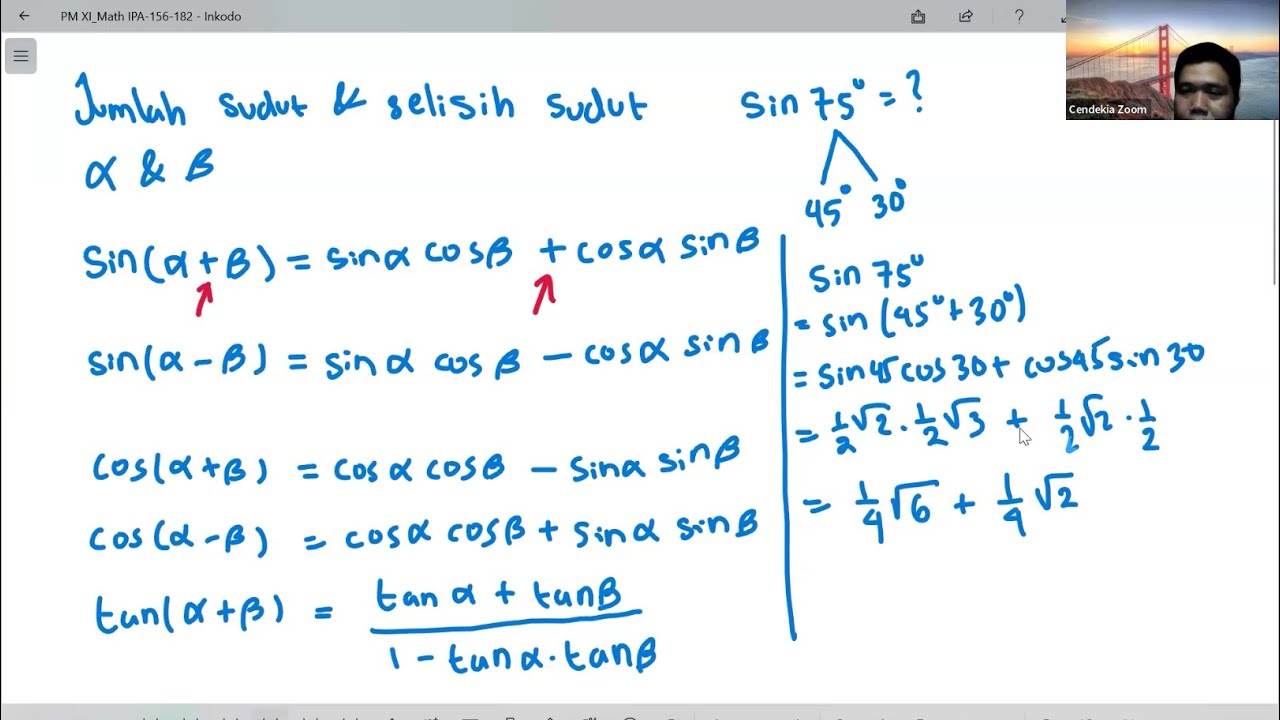 PM XI_Math IPA-156-182 - Inkodo
Cendekia Zoom
Jumlah sudut & selisih sudut
α & β
Sin(α+β) = sinα cosβ + cosα sinβ
sin(α-β) = sinα cosβ - cosα sinβ
cos(α+β) = cosα cosβ - sinα sinβ
cos(α-β) = cosα cosβ + sinα sinβ
tan(α+β) = tanα + tanβ
1 - tanα · tanβ
sin 75° = ?
45° 30°
sin 75°
= sin (45°+30°)
= sin45 cos 30 + cos45 sin 30
= 1/2 √2 · 1/2 √3 + 1/2 √2 · 1/2
= 1/4 √6 + 1/4 √2